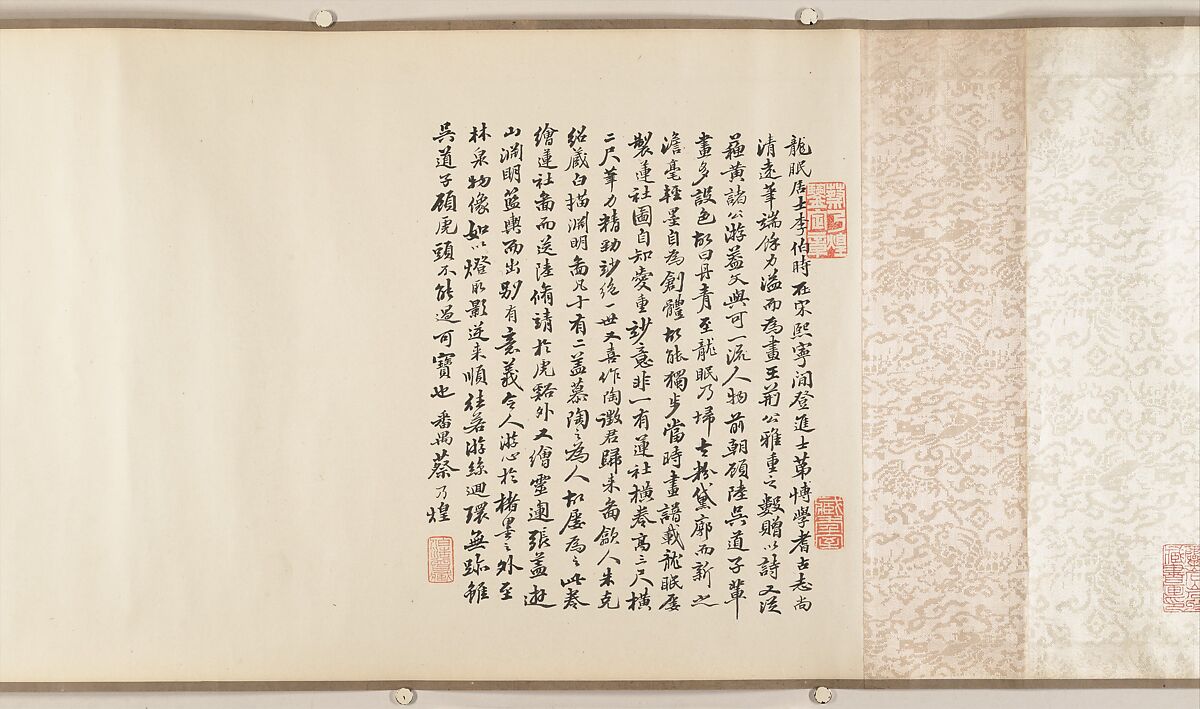 龍眠居士李伯時在宋熙寧間登進士第博學耆古志尚
清遠筆端餘力溢而為畫王荊公雅重之數贈以詩又從
蘇黃諸公游蓋文與可一流人物前朝顧陸吳道子輩
畫多設色故曰丹青至龍眠乃埽去粉黛廓而新之
澹毫輕墨自為創體故能獨步當時畫譜載龍眠屢
製蓮社圖自知愛重紗意非一有蓮社橫卷高三尺橫
二尺筆力精勁紗絶一世又喜作陶徵君歸来啚歙人朱克
紹蔵白描淵明啚凡十有二蓋慕陶之為人故屢為之此卷
繪蓮社啚而送陸脩靖於虎谿外又繪靈運張蓋遊
山淵明籃輿而出别有意義令人游心於楮墨之外至
林泉物像如以燈取影逆来順往若游絲迴環無跡雖
吳道子顧虎頭不能過可寶也 番禺蔡乃煌
蔡乃煌